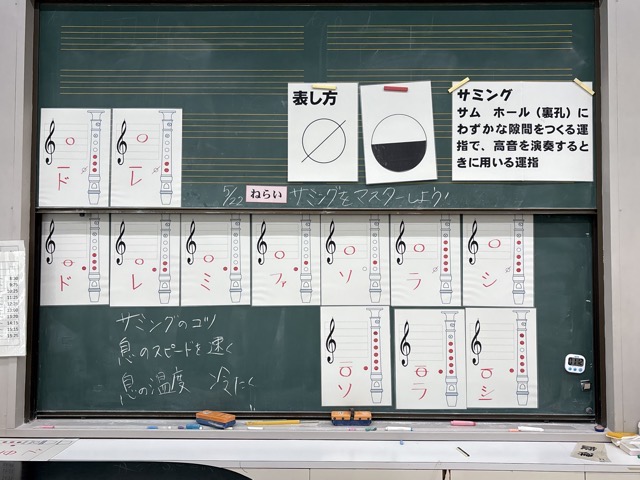 表し方
サミング
サム　ホール（裏孔）に
わずかな隙間をつくる運
指で、高音を演奏すると
きに用いる運指
ド
レ
5/22 ねらい サミングをマスターしよう!
ド
レ
ミ
ファ
ソ
ラ
シ
サミングのコツ
息のスピードを速く
息の温度 冷たく
ソ
ラ
シ